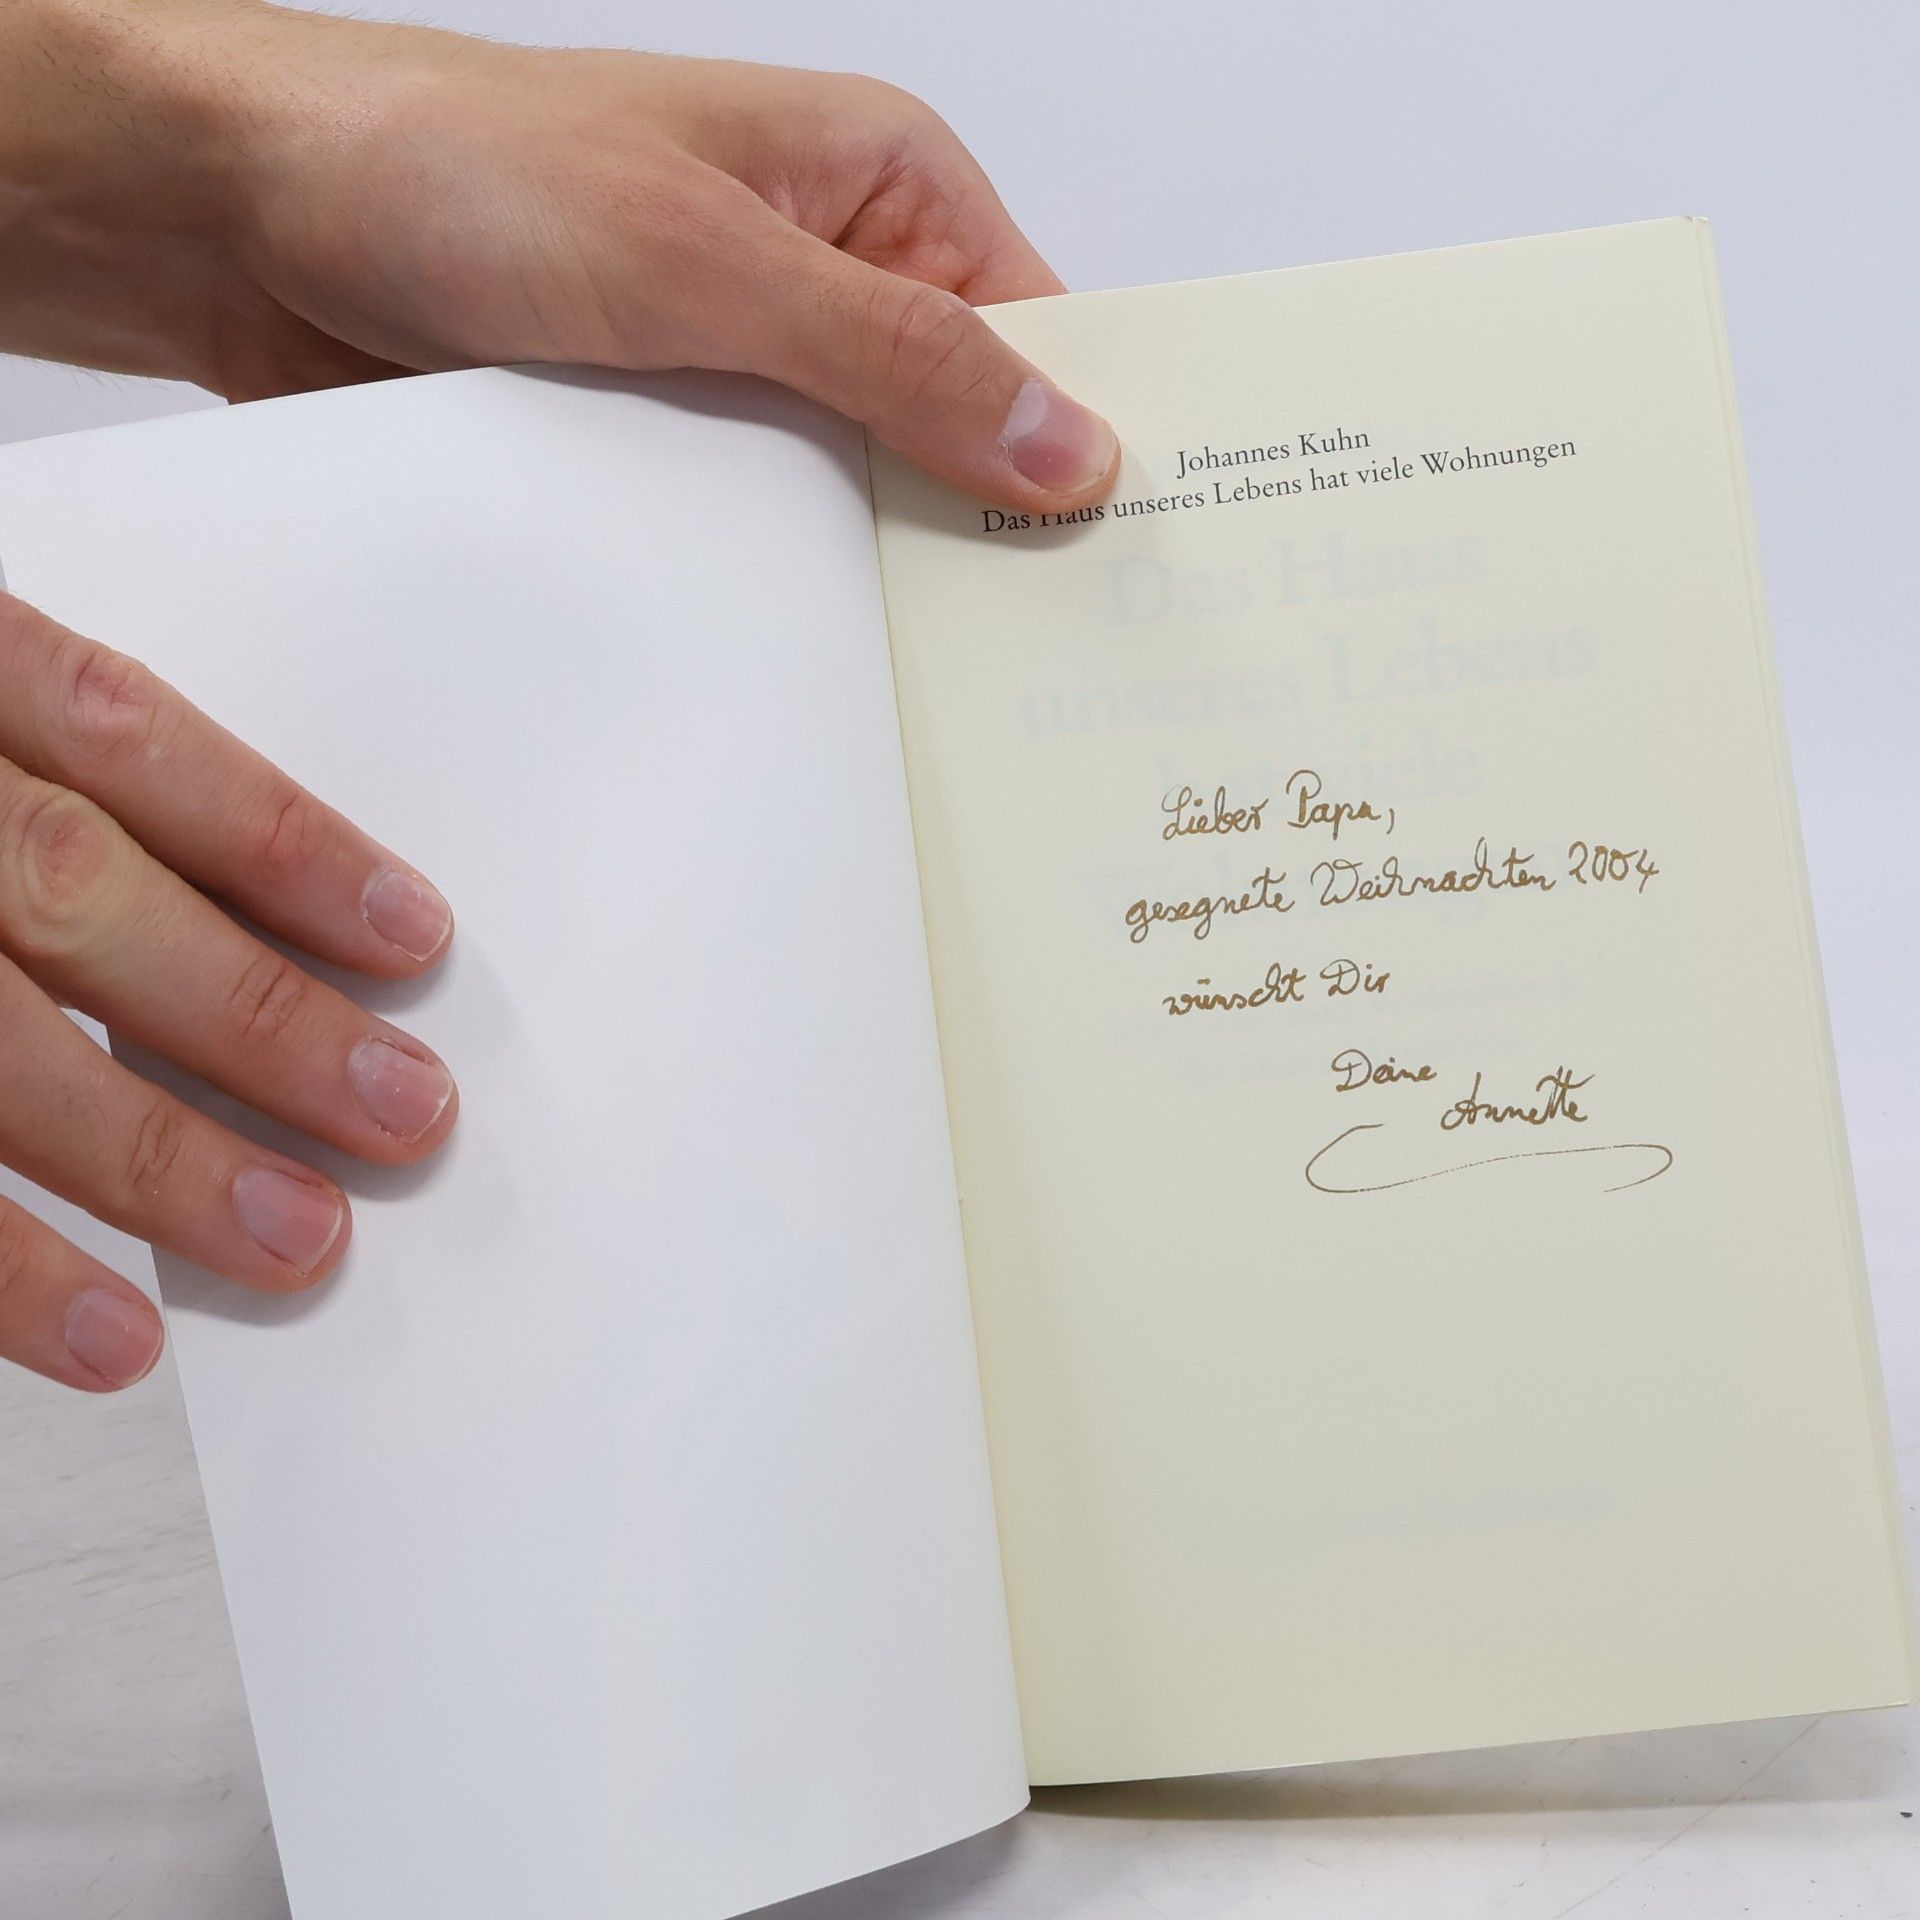 Johannes Kuhn
Das Haus unseres Lebens hat viele Wohnungen
Das Haus
unseres Lebens
hat viele
Lieber Papa,
gesegnete Weihnachten 2004
wünscht Dir
Deine
Annette